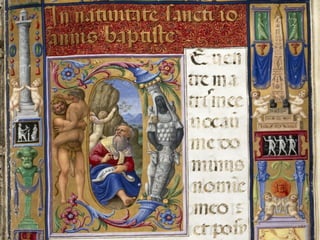 In natiuitate sancti io
annis baptiste
E uen
tre ma
tris mee
uocauit
me do
minus
nomine
meo
et posu